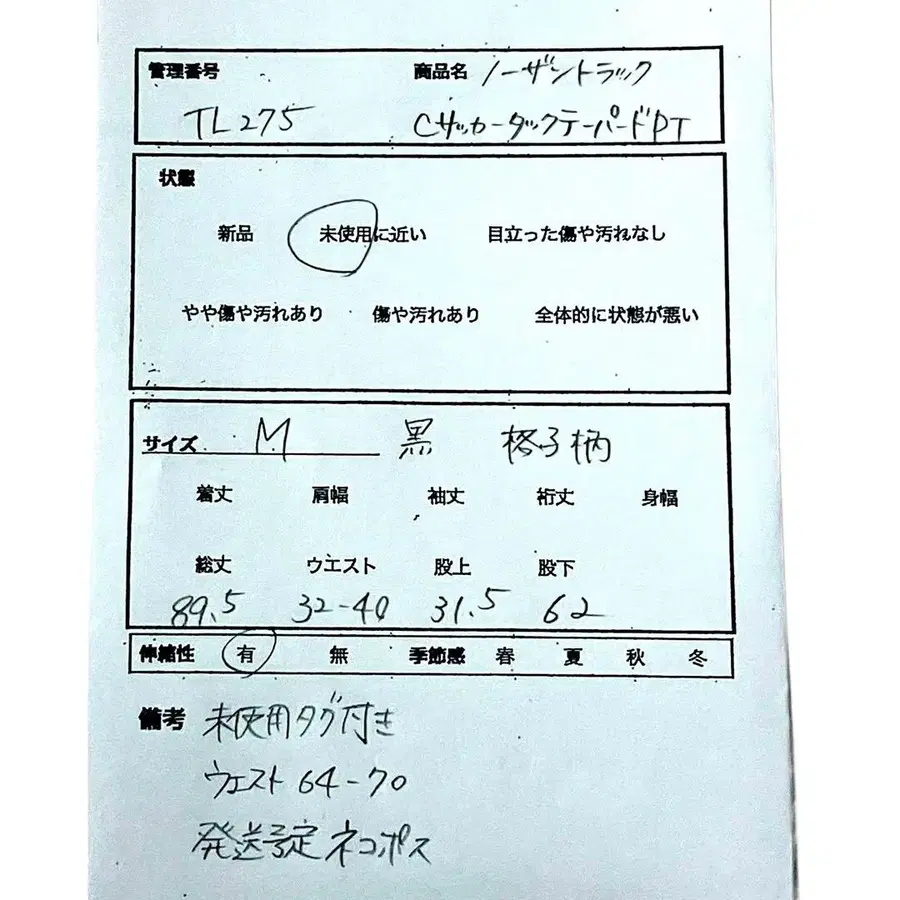 管理番号 商品名 ノーザントラック
TL275 CサッカータックテーパードPT
状態
新品 未使用に近い 目立った傷や汚れなし
やや傷や汚れあり 傷や汚れあり 全体的に状態が悪い
サイズ M 黒 格子柄
着丈 肩幅 袖丈 裄丈 身幅
総丈 ウエスト 股上 股下
89.5 32-40 31.5 62
伸縮性 有 無 季節感 春 夏 秋 冬
備考 未使用タグ付き
ウエスト 64-70
発送予定 ネコポス